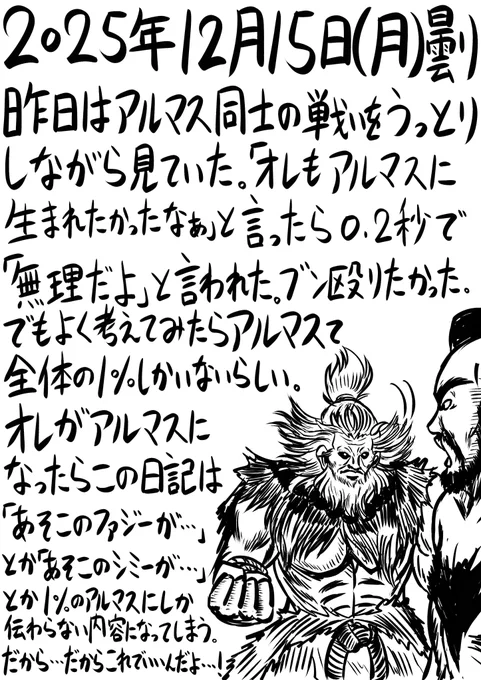 2025年12月15日(月)曇り
昨日はアルマス同士の戦いをうっとり
しながら見ていた。「オレもアルマスに
生まれたかったなぁ」と言ったら0.2秒で
「無理だよ」と言われた。ブン殴りたかった。
でもよく考えてみたらアルマスて
全体の1%しかいないらしい。
オレがアルマスに
なったらこの日記は
「あそこのファジーが…」
とか「あそこのシミーが…」
とか1%のアルマスにしか
伝わらない内容になってしまう。
だから…だからこれでいいんだよ…!